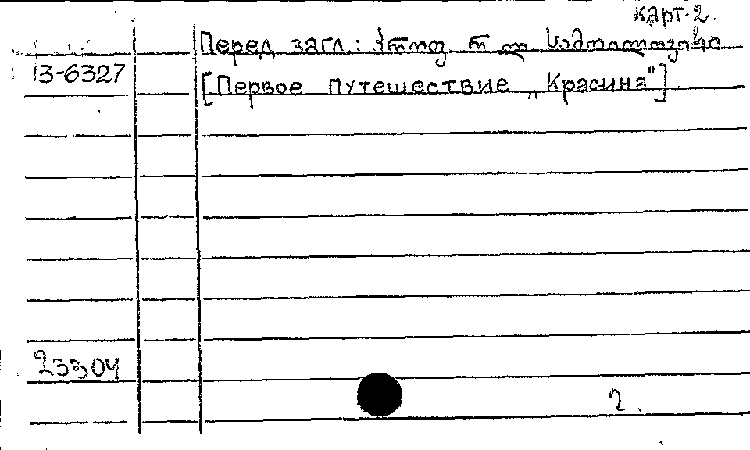 карт. 2.
Перед загл.:
13-6327
[Первое путешествие „Красина"]
23304
2.